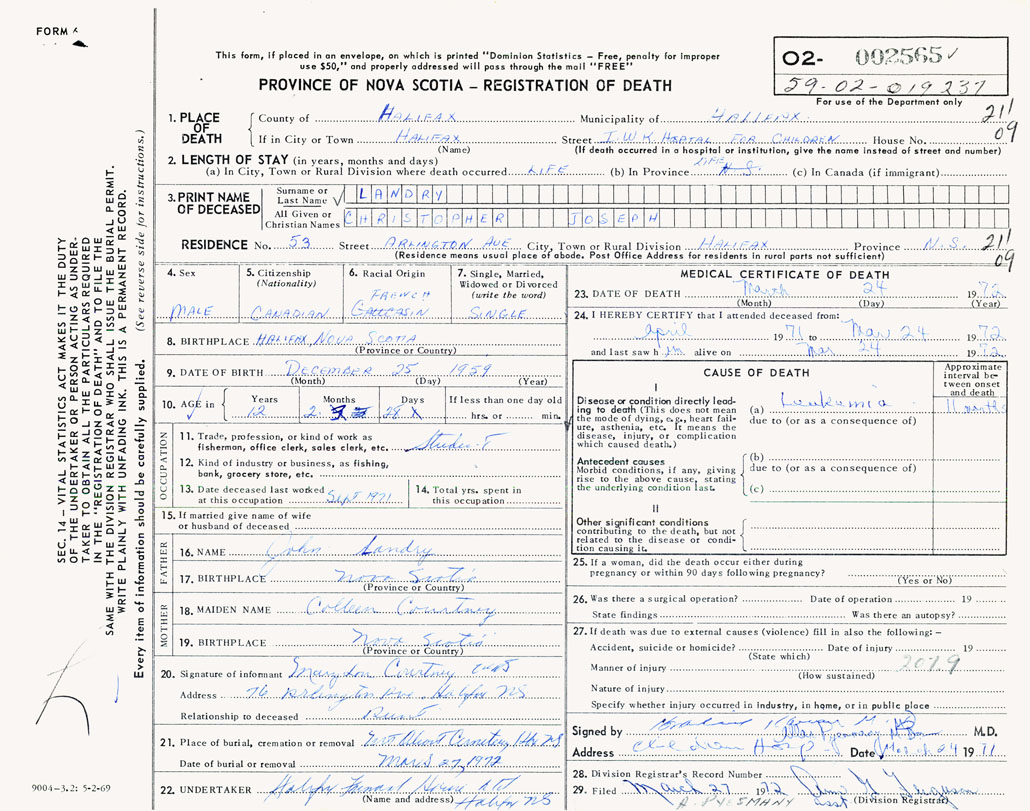 FORM
This form, if placed in an envelope, on which is printed "Dominion Statistics – Free, penalty for improper
use $50," and properly addressed will pass through the mail "FREE"
PROVINCE OF NOVA SCOTIA – REGISTRATION OF DEATH
O2- 002565
59-02-019237
For use of the Department only
211
09
1. PLACE OF DEATH
County of HALIFAX Municipality of HALIFAX
If in City or Town HALIFAX Street I.W.K HSPTAL FOR CHILDREN House No.
(Name) (If death occurred in a hospital or institution, give the name instead of street and number)
2. LENGTH OF STAY (in years, months and days)
(a) In City, Town or Rural Division where death occurred LIFE (b) In Province LIFE N.S. (c) In Canada (if immigrant)
3. PRINT NAME OF DECEASED
Surname or Last Name LANDRY
All Given or Christian Names CHRISTOPHER JOSEPH
RESIDENCE No. 53 Street ARLINGTON AVE City, Town or Rural Division HALIFAX Province N.S. 211
09
(Residence means usual place of abode. Post Office Address for residents in rural parts not sufficient)
4. Sex
MALE
5. Citizenship
(Nationality)
CANADIAN
6. Racial Origin
FRENCH
7. Single, Married,
Widowed or Divorced
(write the word)
SINGLE
8. BIRTHPLACE HALIFAX, NOVA SCOTIA
(Province or Country)
9. DATE OF BIRTH DECEMBER 25 1959
(Month) (Day) (Year)
10. AGE in Years Months Days If less than one day old
12 2 28 hrs. or min.
OCCUPATION
11. Trade, profession, or kind of work as
fisherman, office clerk, sales clerk, etc. Student
12. Kind of industry or business, as fishing,
bank, grocery store, etc.
13. Date deceased last worked
at this occupation Sept 1971
14. Total yrs. spent in
this occupation
15. If married give name of wife
or husband of deceased
FATHER
16. NAME John Landry
17. BIRTHPLACE Nova Scotia
(Province or Country)
MOTHER
18. MAIDEN NAME Colleen Courtney
19. BIRTHPLACE Nova Scotia
(Province or Country)
20. Signature of informant Courtney
Address 76 Arlington Ave. Halifax NS
Relationship to deceased Aunt
21. Place of burial, cremation or removal Cemetery NS
Date of burial or removal March 27, 1972
22. UNDERTAKER Halifax Funeral Home
(Name and address) Halifax NS
MEDICAL CERTIFICATE OF DEATH
23. DATE OF DEATH March 24 1972
(Month) (Day) (Year)
24. I HEREBY CERTIFY that I attended deceased from:
April 1971 to Mar 24 1972
and last saw him alive on Mar 24 1972
CAUSE OF DEATH
Approximate
interval be-
tween onset
and death
I
Disease or condition directly lead-
ing to death (This does not mean
the mode of dying, e.g., heart fail-
ure, asthenia, etc. It means the
disease, injury, or complication
which caused death.)
(a) Leukemia 11 months
due to (or as a consequence of)
Antecedent causes
Morbid conditions, if any, giving
rise to the above cause, stating
the underlying condition last.
(b)
due to (or as a consequence of)
(c)
II
Other significant conditions
contributing to the death, but not
related to the disease or condi-
tion causing it.
25. If a woman, did the death occur either during
pregnancy or within 90 days following pregnancy?
(Yes or No)
26. Was there a surgical operation? Date of operation 19
State findings Was there an autopsy?
27. If death was due to external causes (violence) fill in also the following: –
Accident, suicide or homicide? Date of injury 19
(State which)
Manner of injury 2079
(How sustained)
Nature of injury
Specify whether injury occurred in industry, in home, or in public place
Signed by M.D.
Address Children Hosp Date March 24 1971
28. Division Registrar's Record Number
29. Filed March 27 1972 Ferguson
A. PYESMANY (Division Registrar)
SEC. 14 – VITAL STATISTICS ACT MAKES IT THE DUTY
OF THE UNDERTAKER OR PERSON ACTING AS UNDER-
TAKER TO OBTAIN ALL THE PARTICULARS REQUIRED
IN THE "REGISTRATION OF DEATH" AND TO FILE THE
SAME WITH THE DIVISION REGISTRAR WHO SHALL ISSUE THE BURIAL PERMIT.
WRITE PLAINLY WITH UNFADING INK. THIS IS A PERMANENT RECORD.
Every item of information should be carefully supplied. (See reverse side for instructions.)
9004-3.2: 5-2-69